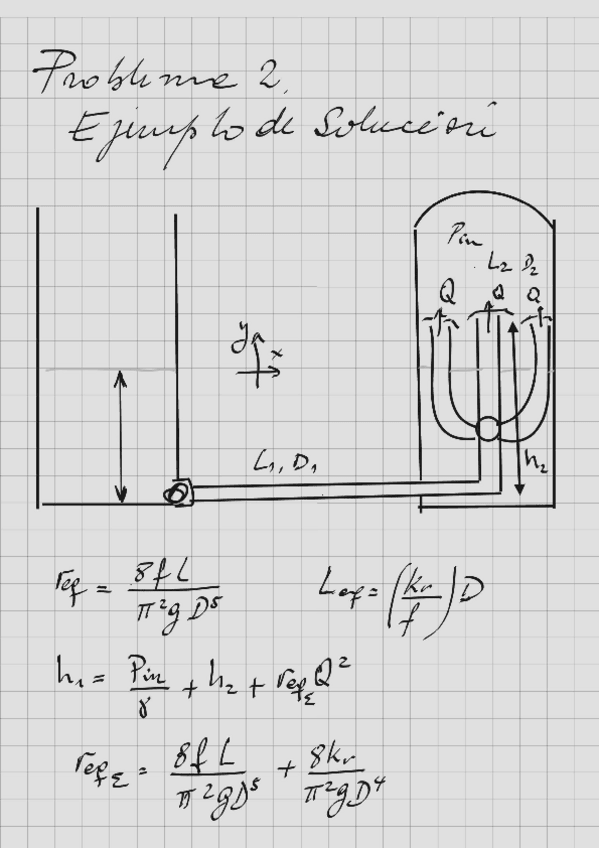 Problema 2.
Ejemplo de Solución
Pin
L₂ D₂
Q Q Q
y
x
L₁, D₁
h₂
r_ef = 8fL / π²gD⁵
L_ef = (k_r / f) D
h₁ = Pin / γ + h₂ + r_efΣ Q²
r_efΣ = 8fL / π²gD⁵ + 8k_r / π²gD⁴